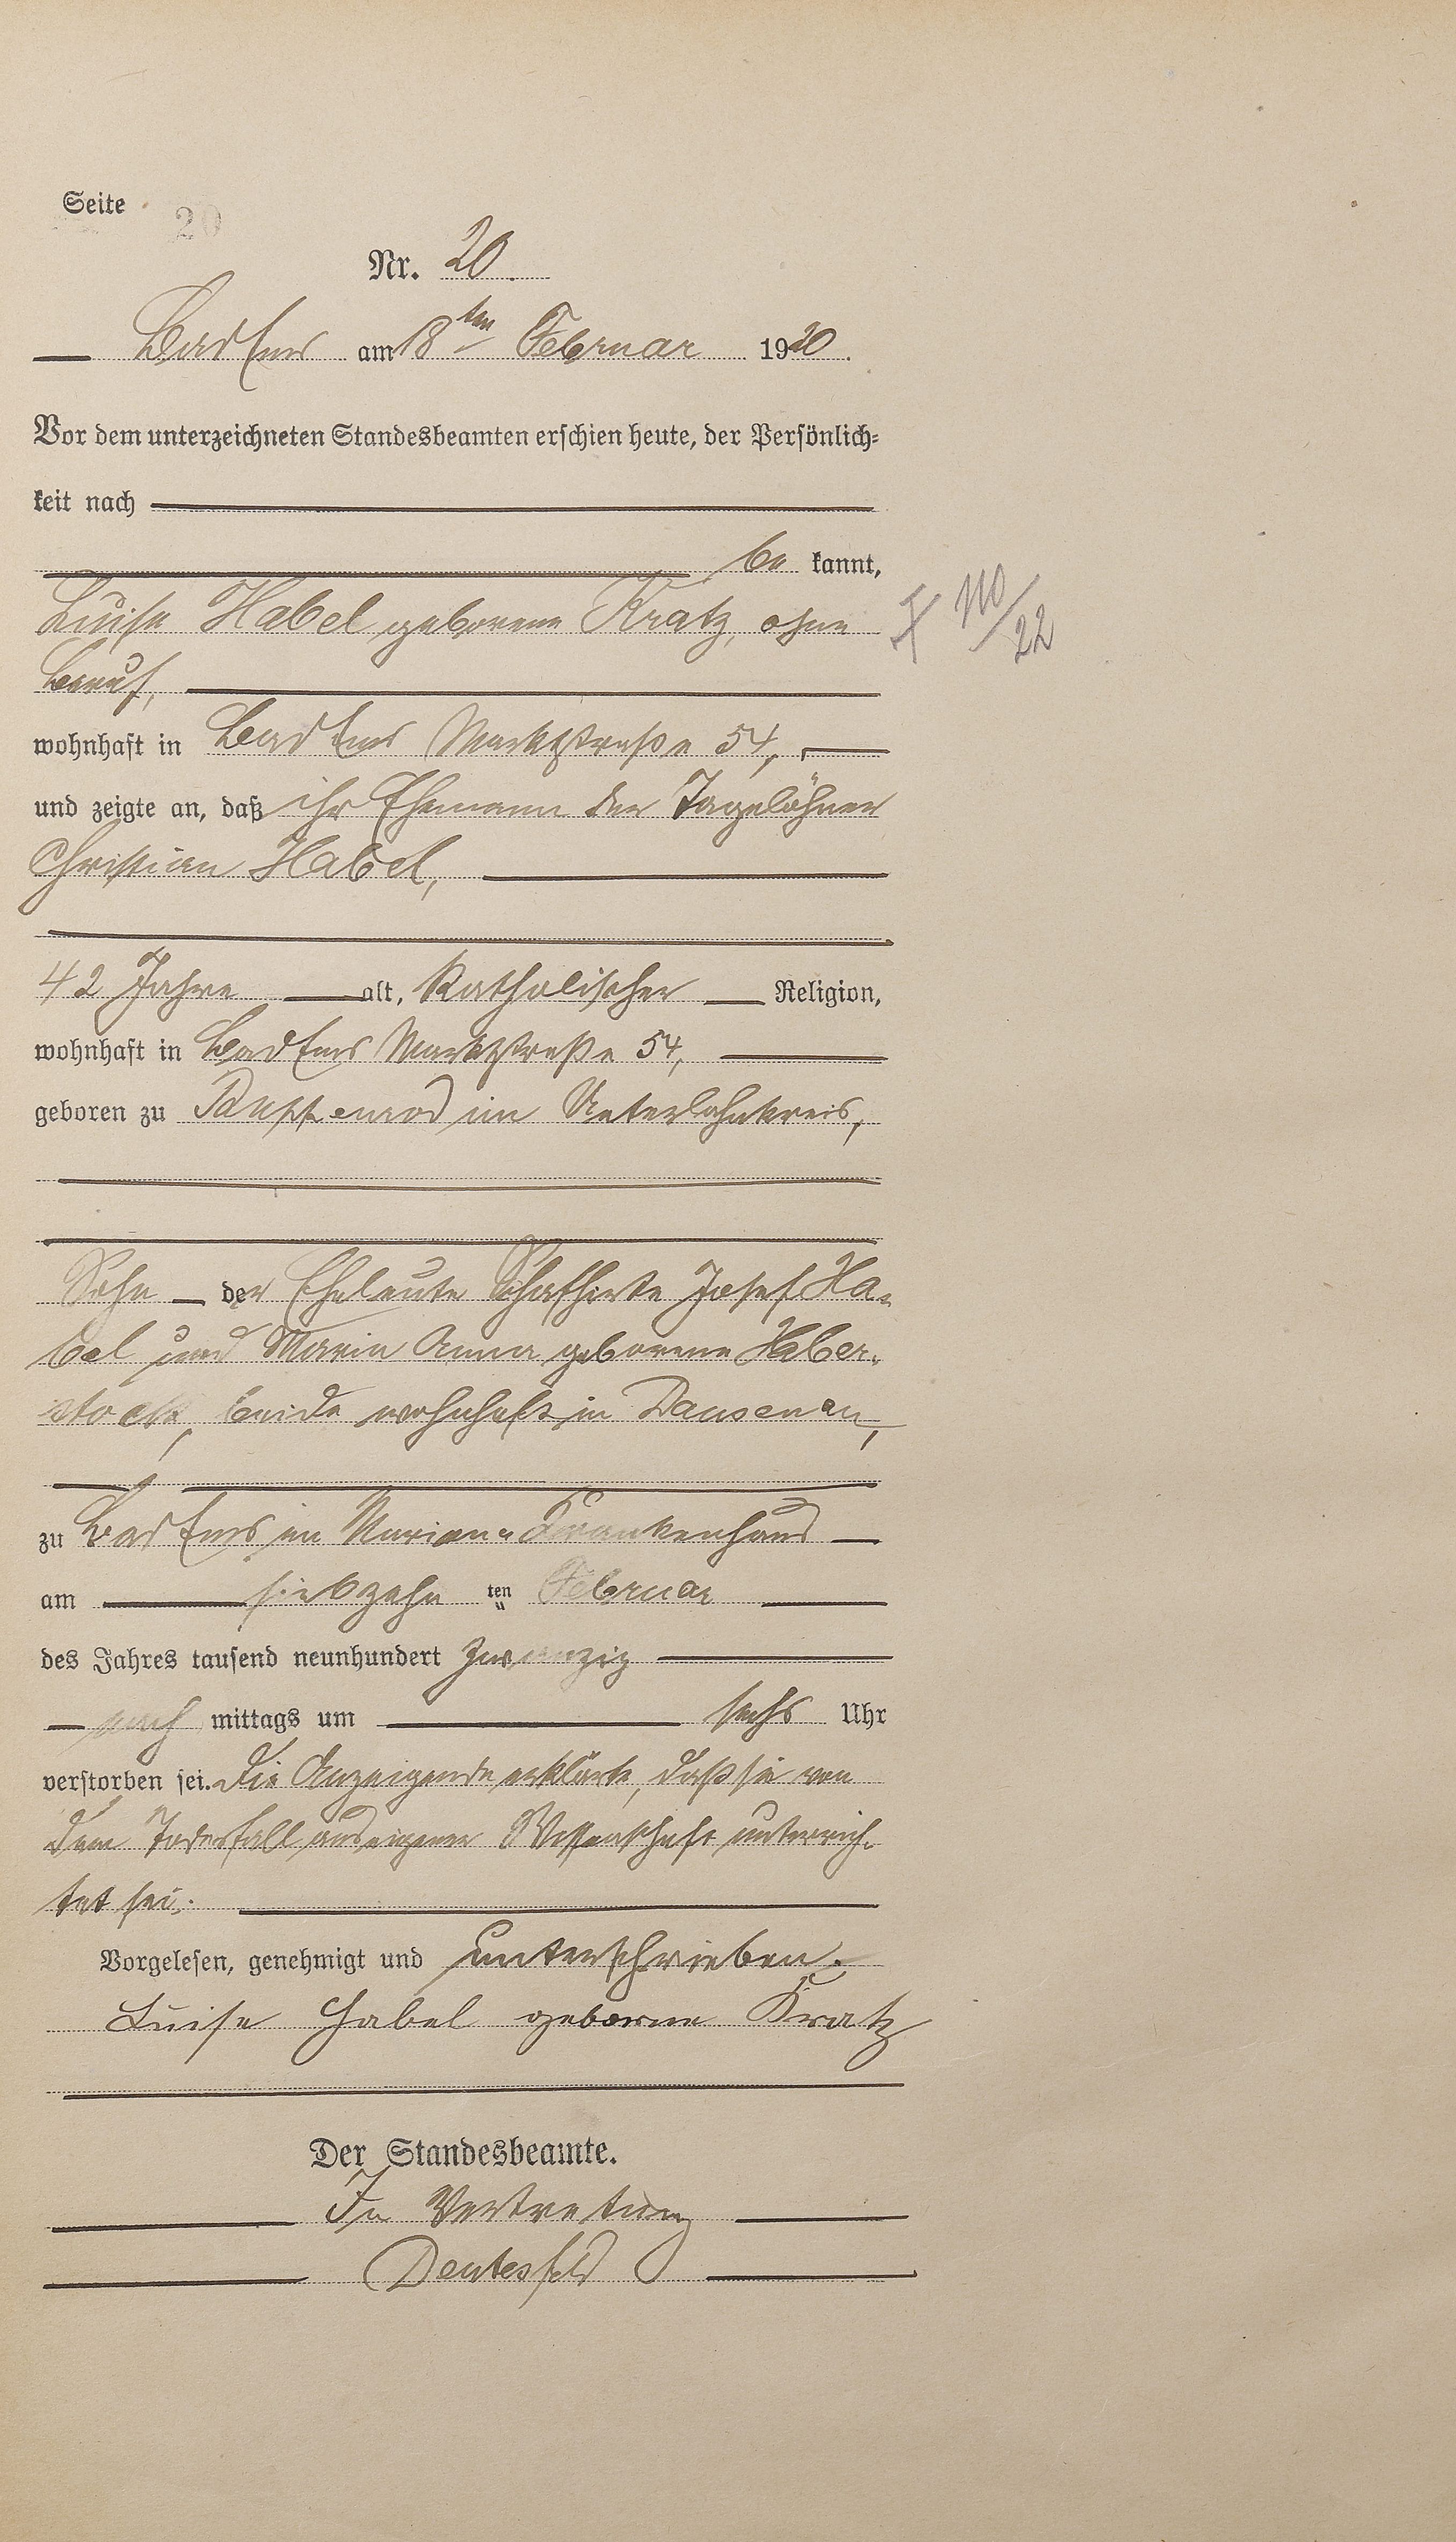 Seite 20
Nr. 20.
Bad Ems am 18ten Februar 1920.
Vor dem unterzeichneten Standesbeamten erschien heute, der Persönlich=
keit nach
be kannt,
Luise Habel geborene Kratz, ohne
Beruf,
wohnhaft in Bad Ems Marktstraße 54,
und zeigte an, daß ihr Ehemann der Tagelöhner
Christian Habel,
42 Jahre alt, katholischer Religion,
wohnhaft in Bad Ems Marktstraße 54,
geboren zu im Unterlahnkreis,
Sohn der Eheleute Schafhirte Josef Ha-
bel und Maria Anna geborene Haber-
stock, beide wohnhaft in Dausenau,
zu Bad Ems im Marien-Krankenhaus
am siebzehn ten Februar
des Jahres tausend neunhundert zwanzig
nach mittags um sechs Uhr
verstorben sei. Die Anzeigende erklärte, daß sie von
dem Todesfall aus eigener Wissenschaft unterrich-
tet sei.
Vorgelesen, genehmigt und unterschrieben.
Luise Habel geborne Kratz
Der Standesbeamte.
In Vertretung